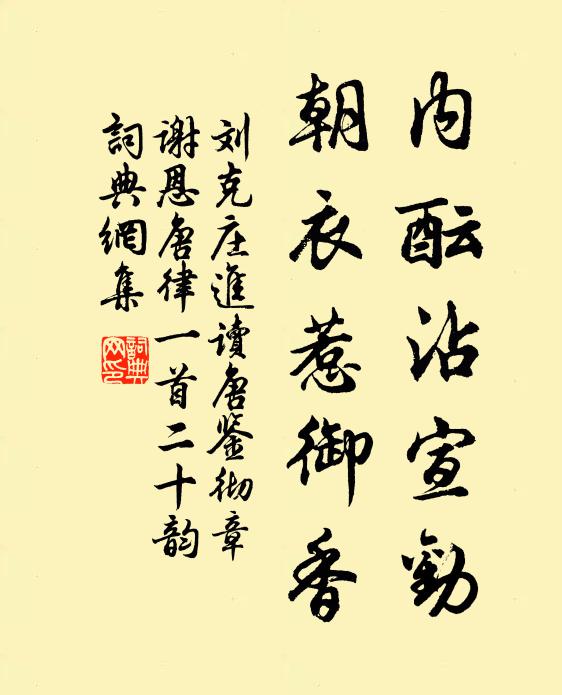 内酝沾宣勸
朝衣惹御香
刘克庄進讀唐鉴彻章
谢恩唐律一首二十韵
詞典網集
詞典
网印